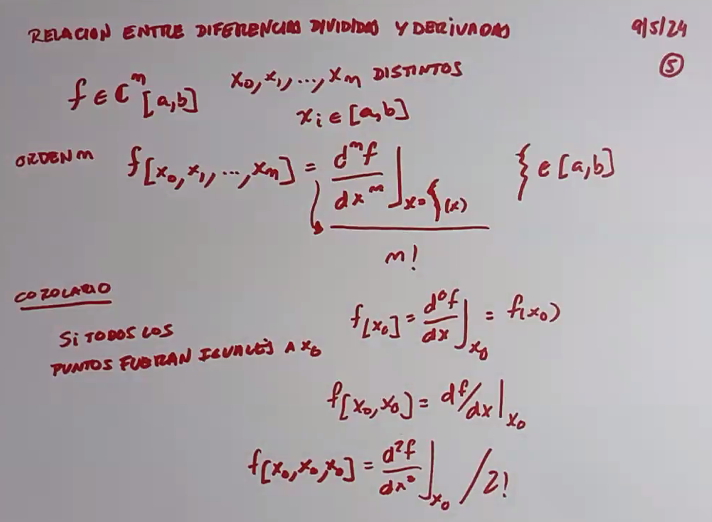 RELACION ENTRE DIFERENCIAS DIVIDIDAS Y DERIVADAS 9/5/24
⑤
f ∈ C^m [a,b] x₀, x₁, ..., xₘ DISTINTOS
xᵢ ∈ [a,b]
ORDEN m f[x₀, x₁, ..., xₘ] = d^m f / dx^m |ₓ₌ξ(x) / m! ξ ∈ [a,b]
COROLARIO
SI TODOS LOS
PUNTOS FUERAN IGUALES A x₀
f[x₀] = d⁰f / dx |ₓ₀ = f(x₀)
f[x₀, x₀] = df/dx |ₓ₀
f[x₀, x₀, x₀] = d²f / dx² |ₓ₀ / 2!